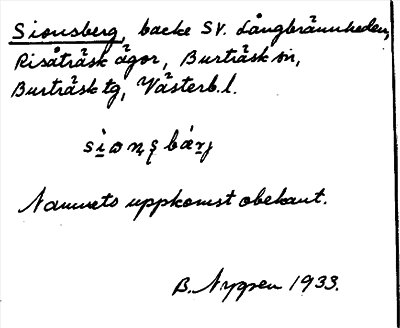 Sionsberg, backe SV. Långbrännheden,
Risåträsk ägor, Burträsk sn,
Burträsk tg, Västerb.l.
Namnets uppkomst obekant.
B. Nygren 1933.